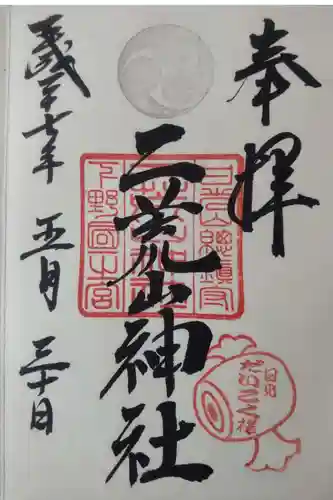 奉拝
日光山總鎮守
二荒山神社
下野國一宮
平成二十七年 五月 三十日
日光
だいこく様